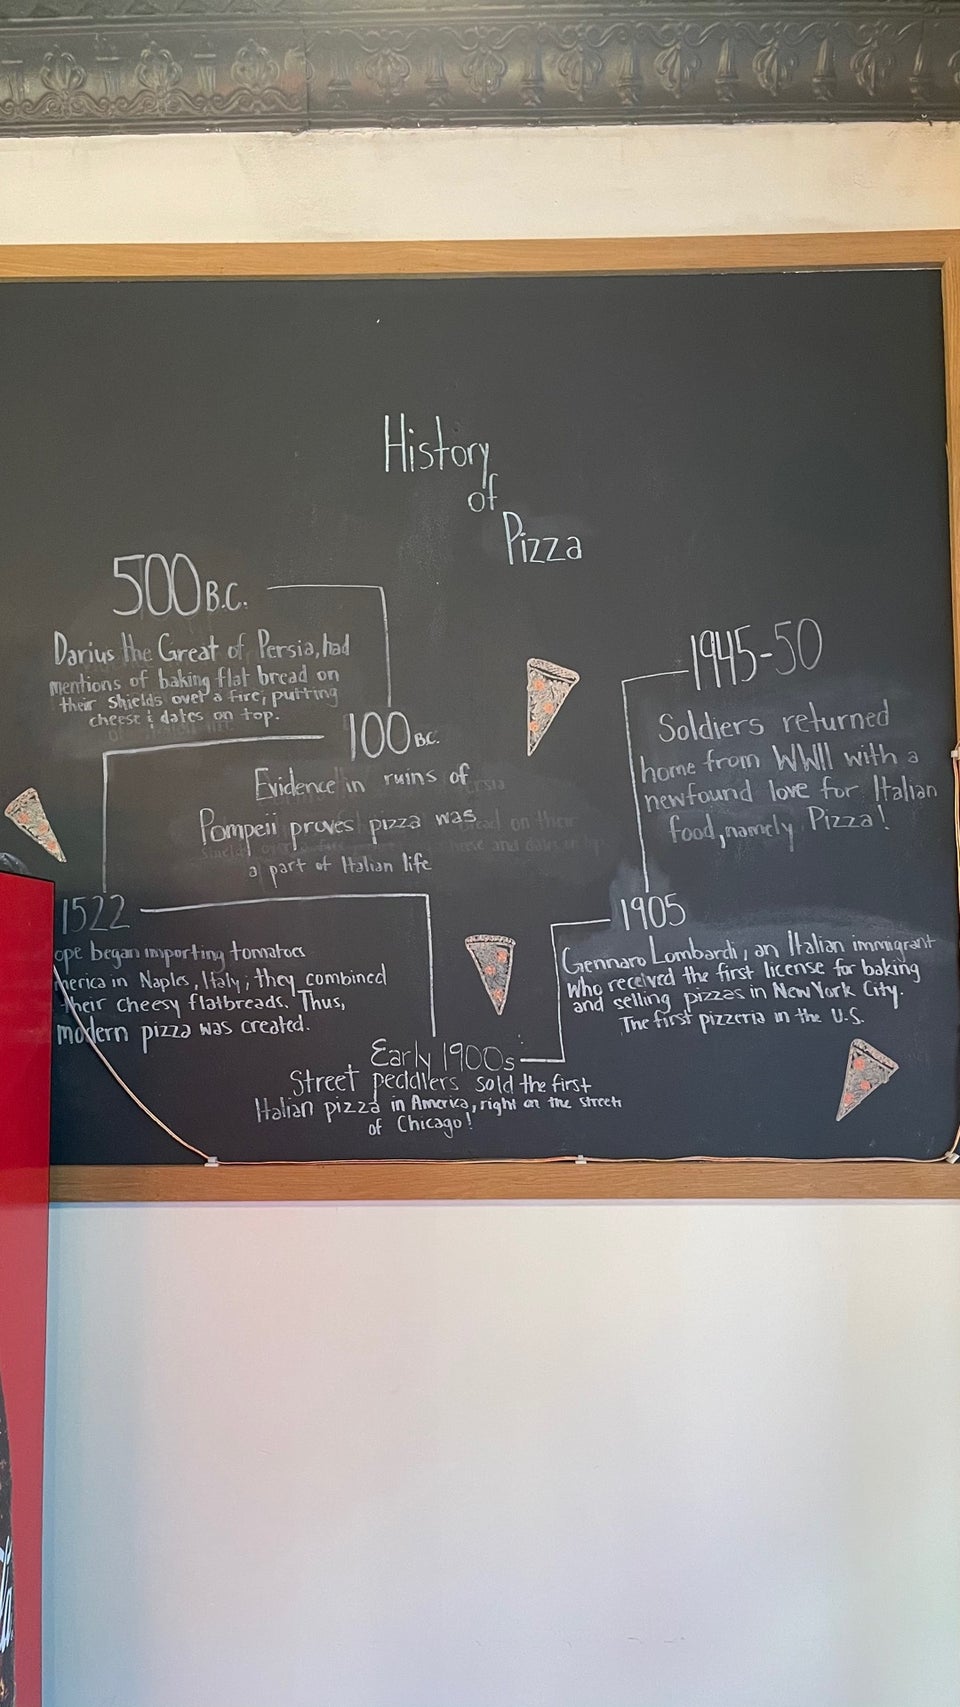 History
of
Pizza
500 B.C.
Darius the Great of Persia, had
mentions of baking flat bread on
their shields over a fire; putting
cheese & dates on top.
100 B.C.
Evidence in ruins of
Pompeii proves pizza was
a part of Italian life
1522
ope began importing tomatoes
merica in Naples, Italy; they combined
their cheesy flatbreads. Thus,
modern pizza was created.
Early 1900s
Street peddlers sold the first
Italian pizza in America, right on the streets
of Chicago!
1905
Gennaro Lombardi, an Italian immigrant
who received the first license for baking
and selling pizzas in New York City.
The first pizzeria in the U.S.
1945-50
Soldiers returned
home from WWII with a
newfound love for Italian
food, namely Pizza!